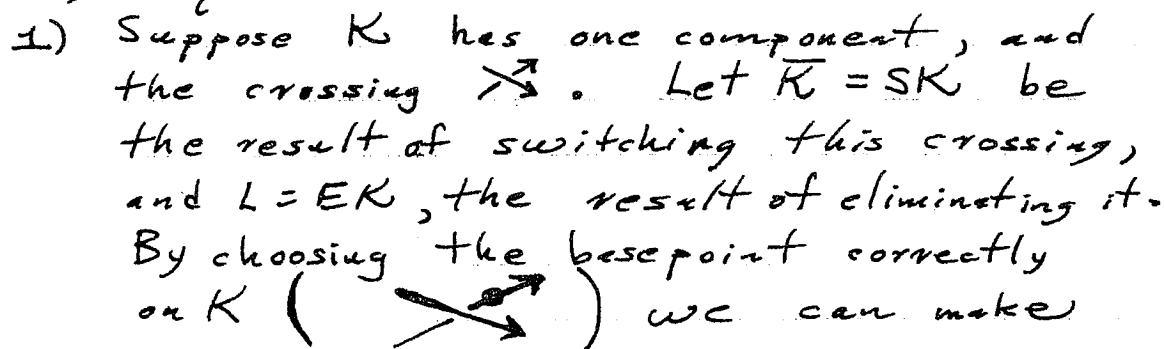 1) Suppose K has one component, and
the crossing . Let K̅ = SK be
the result of switching this crossing,
and L = EK, the result of eliminating it.
By choosing the basepoint correctly
on K ( ) we can make